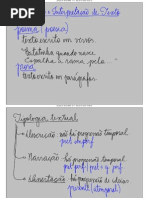 e Interpretação de Texto
poema (poesia)
texto escrito em versos
"Batatinha quando nasce
Espalha a rama pelo..."
prosa
texto escrito em parágrafos.
Tipologia textual
Descrição
não há progressão temporal
Narração
há progressão temporal
Dissertação
há progressão de ideias
(atemporal)